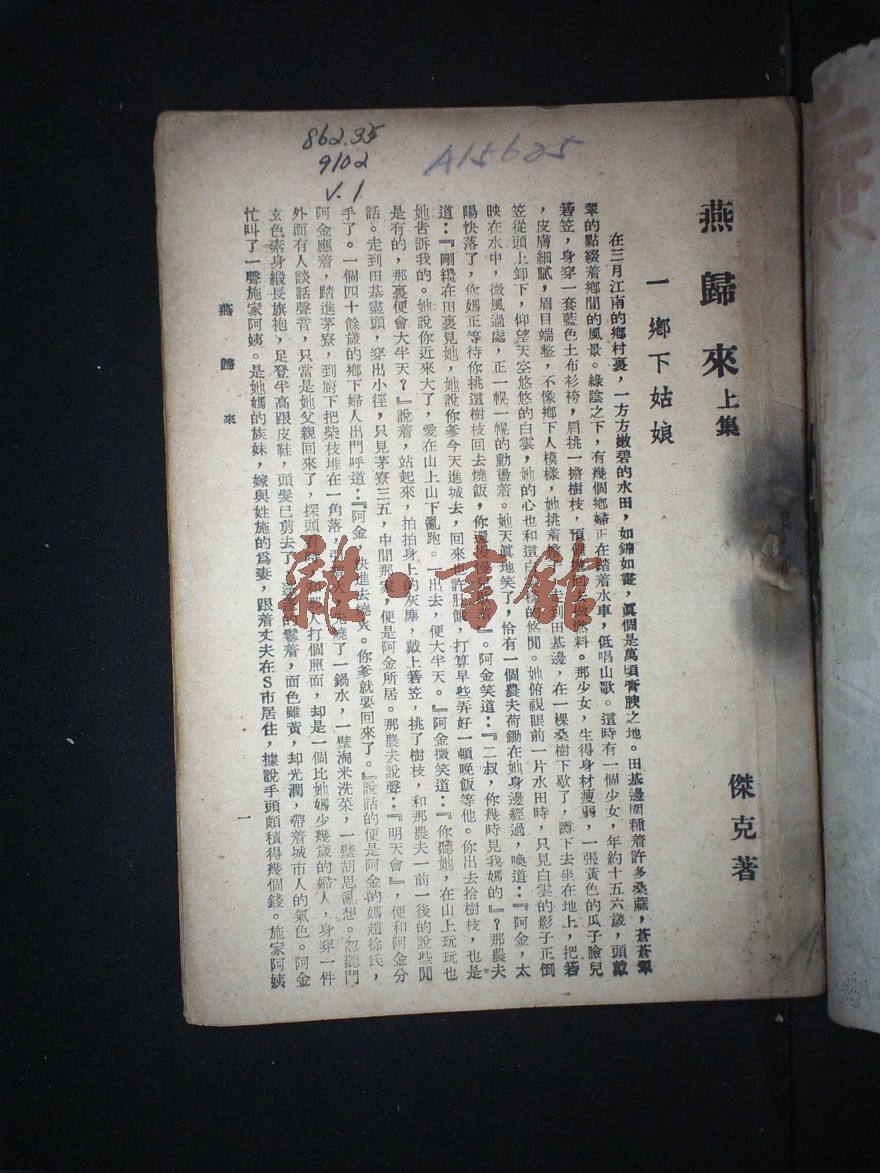 862.35
9102
V.1
A15625
燕歸來 上集
傑克著
一 鄉下姑娘
在三月江南的鄉村裏,一方方嫩碧的水田,如鋪如畫,眞個是萬頃膏腴之地。田基邊間種着許多桑蔴,蒼蒼翠
翠的點綴着鄉間的風景。綠陰之下,有幾個鄉婦正在踏着水車,低唱山歌。這時有一個少女,年約十五六歲,頭戴
箬笠,身穿一套藍色土布衫袴,肩挑一擔樹枝,預備挑回去做燃料。那少女,生得身材瘦弱,一張黃色的瓜子臉兒
,皮膚細膩,眉目端整,不像鄉下人模樣,她挑着擔子,走到田基邊,在一棵桑樹下歇了,蹲下去坐在地上,把箬
笠從頭上卸下,仰望天空悠悠的白雲,她的心也和這白雲的悠閒。她俯視眼前一片水田時,只見白雲的影子正倒
映在水中,微風過處,正一幌一幌的動盪着。她天眞地笑了,恰有一個農夫荷鋤在她身邊經過,喚道:『阿金,太
陽快落了,你媽正等待你挑這樹枝回去燒飯,你還慢慢兒』。阿金笑道:『二叔,你幾時見我媽的』?那農夫
道:『剛纔在田裏見她,她說你爹今天進城去,回來也許肚餓,打算早些弄好一頓晚飯等他。你出去拾樹枝,也是
她告訴我的。她說你近來大了,愛在山上山下亂跑。一出去,便大半天。』阿金微笑道:『你聽她,在山上玩玩也
是有的,那裏便會大半天?』說着,站起來,拍拍身上的灰塵,戴上箬笠,挑了樹枝,和那農夫一前一後的說些閒
話。走到田基盡頭,穿出小徑,只見茅寮三五,中間那家,便是阿金所居。那農夫說聲:『明天會』,便和阿金分
手了。一個四十餘歲的鄉下婦人出門呼道:『阿金,快進去燒火。你爹就要回來了。』說話的便是阿金的媽趙徐氏,
阿金應着,踏進茅寮,到廚下把柴枝堆在一角落,引着火,先燒了一鍋水,一壁淘米洗菜,一壁胡思亂想。忽聽門
外面有人談話聲音,只當是她父親回來了,探頭看時,和那人打個照面,却是一個比她媽少幾歲的婦人,身穿一件
玄色素身緞長旗袍,足登半高跟皮鞋,頭髮已剪去了,的鬈着,面色雖黃,却光潤,帶着城市人的氣色。阿金
忙叫了一聲施家阿姨。是她媽的族妹,嫁與姓施的爲妻,跟着丈夫在S市居住,據說手頭頗積得幾個錢。施家阿姨
燕歸來
一
雜·書館